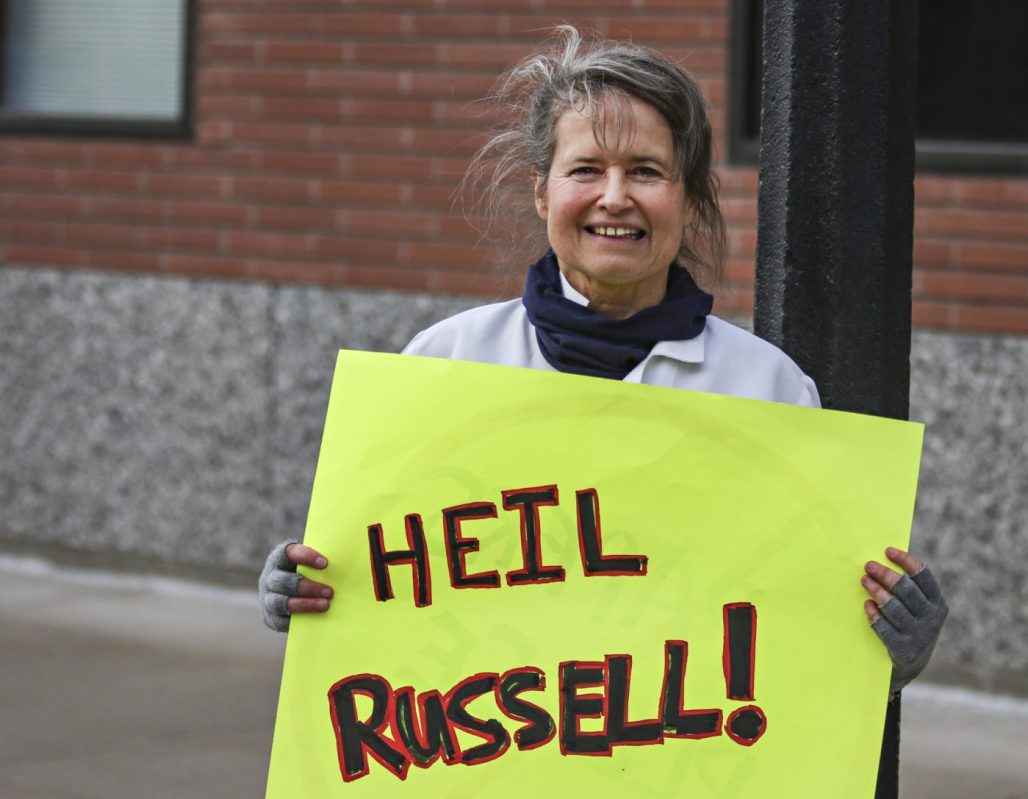 HEIL
RUSSELL!